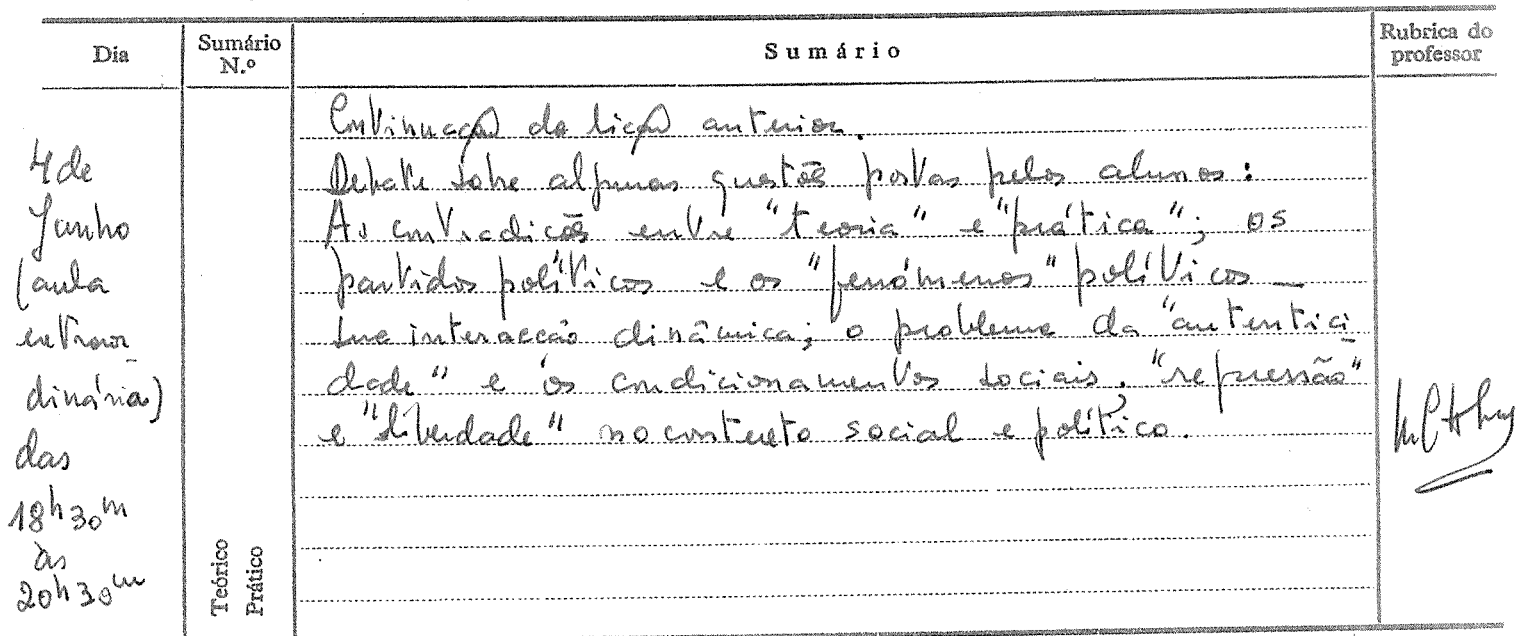 Dia
Sumário
N.º
Sumário
Rubrica do
professor
4 de
Junho
(aula
extraor
dinária)
das
18h30m
às
20h30m
Teórico
Prático
Continuação da lição anterior.
Debate sobre algumas questões postas pelos alunos:
As contradições entre "teoria" e "prática"; os
partidos políticos e os "fenómenos" políticos –
sua interacção dinâmica; o problema da "autentici
dade" e os condicionamentos sociais. "repressão"
e "liberdade" no contexto social e político.